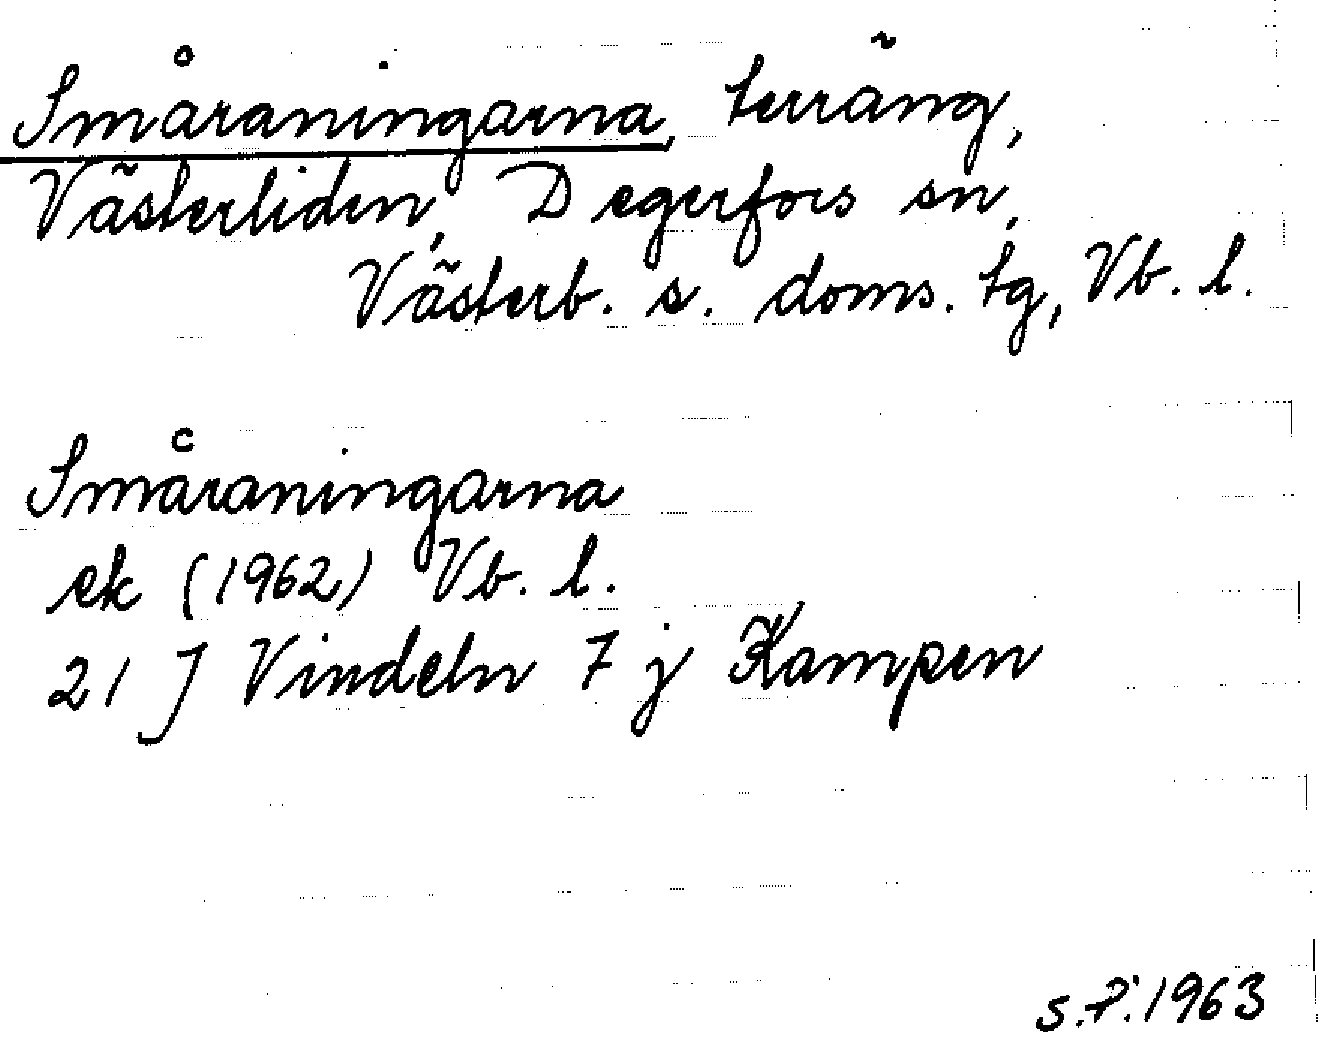 Småraningarna, terräng,
Västerliden, Degerfors sn,
Västerb. s. doms. tg, Vb. l.
Småraningarna
ek (1962) Vb. l.
21 J Vindeln 7 j Kampen
S.P. 1963